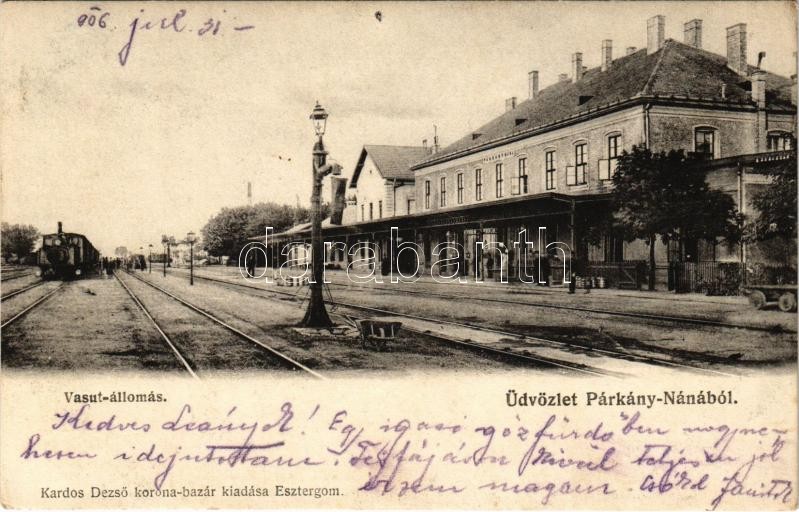 906. jul. 31 –
darabanth
Vasut-állomás.
Üdvözlet Párkány-Nánából.
Kedves Leányok! Egy igazi gőzfürdőben nagyne-
hezen idejutottam. Fejfájáson kivül teljesen jól
érzem magam. Csókol
Kardos Dezső korona-bazár kiadása Esztergom.